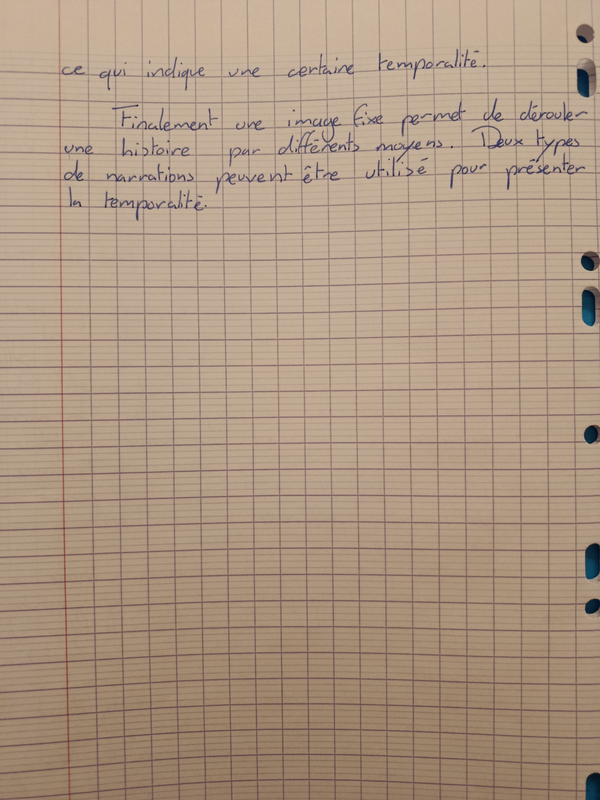 ce qui indique une certaine temporalité.
Finalement une image fixe permet de dérouler
une histoire par différents moyens. Deux types
de narrations peuvent être utilisé pour présenter
la temporalité.